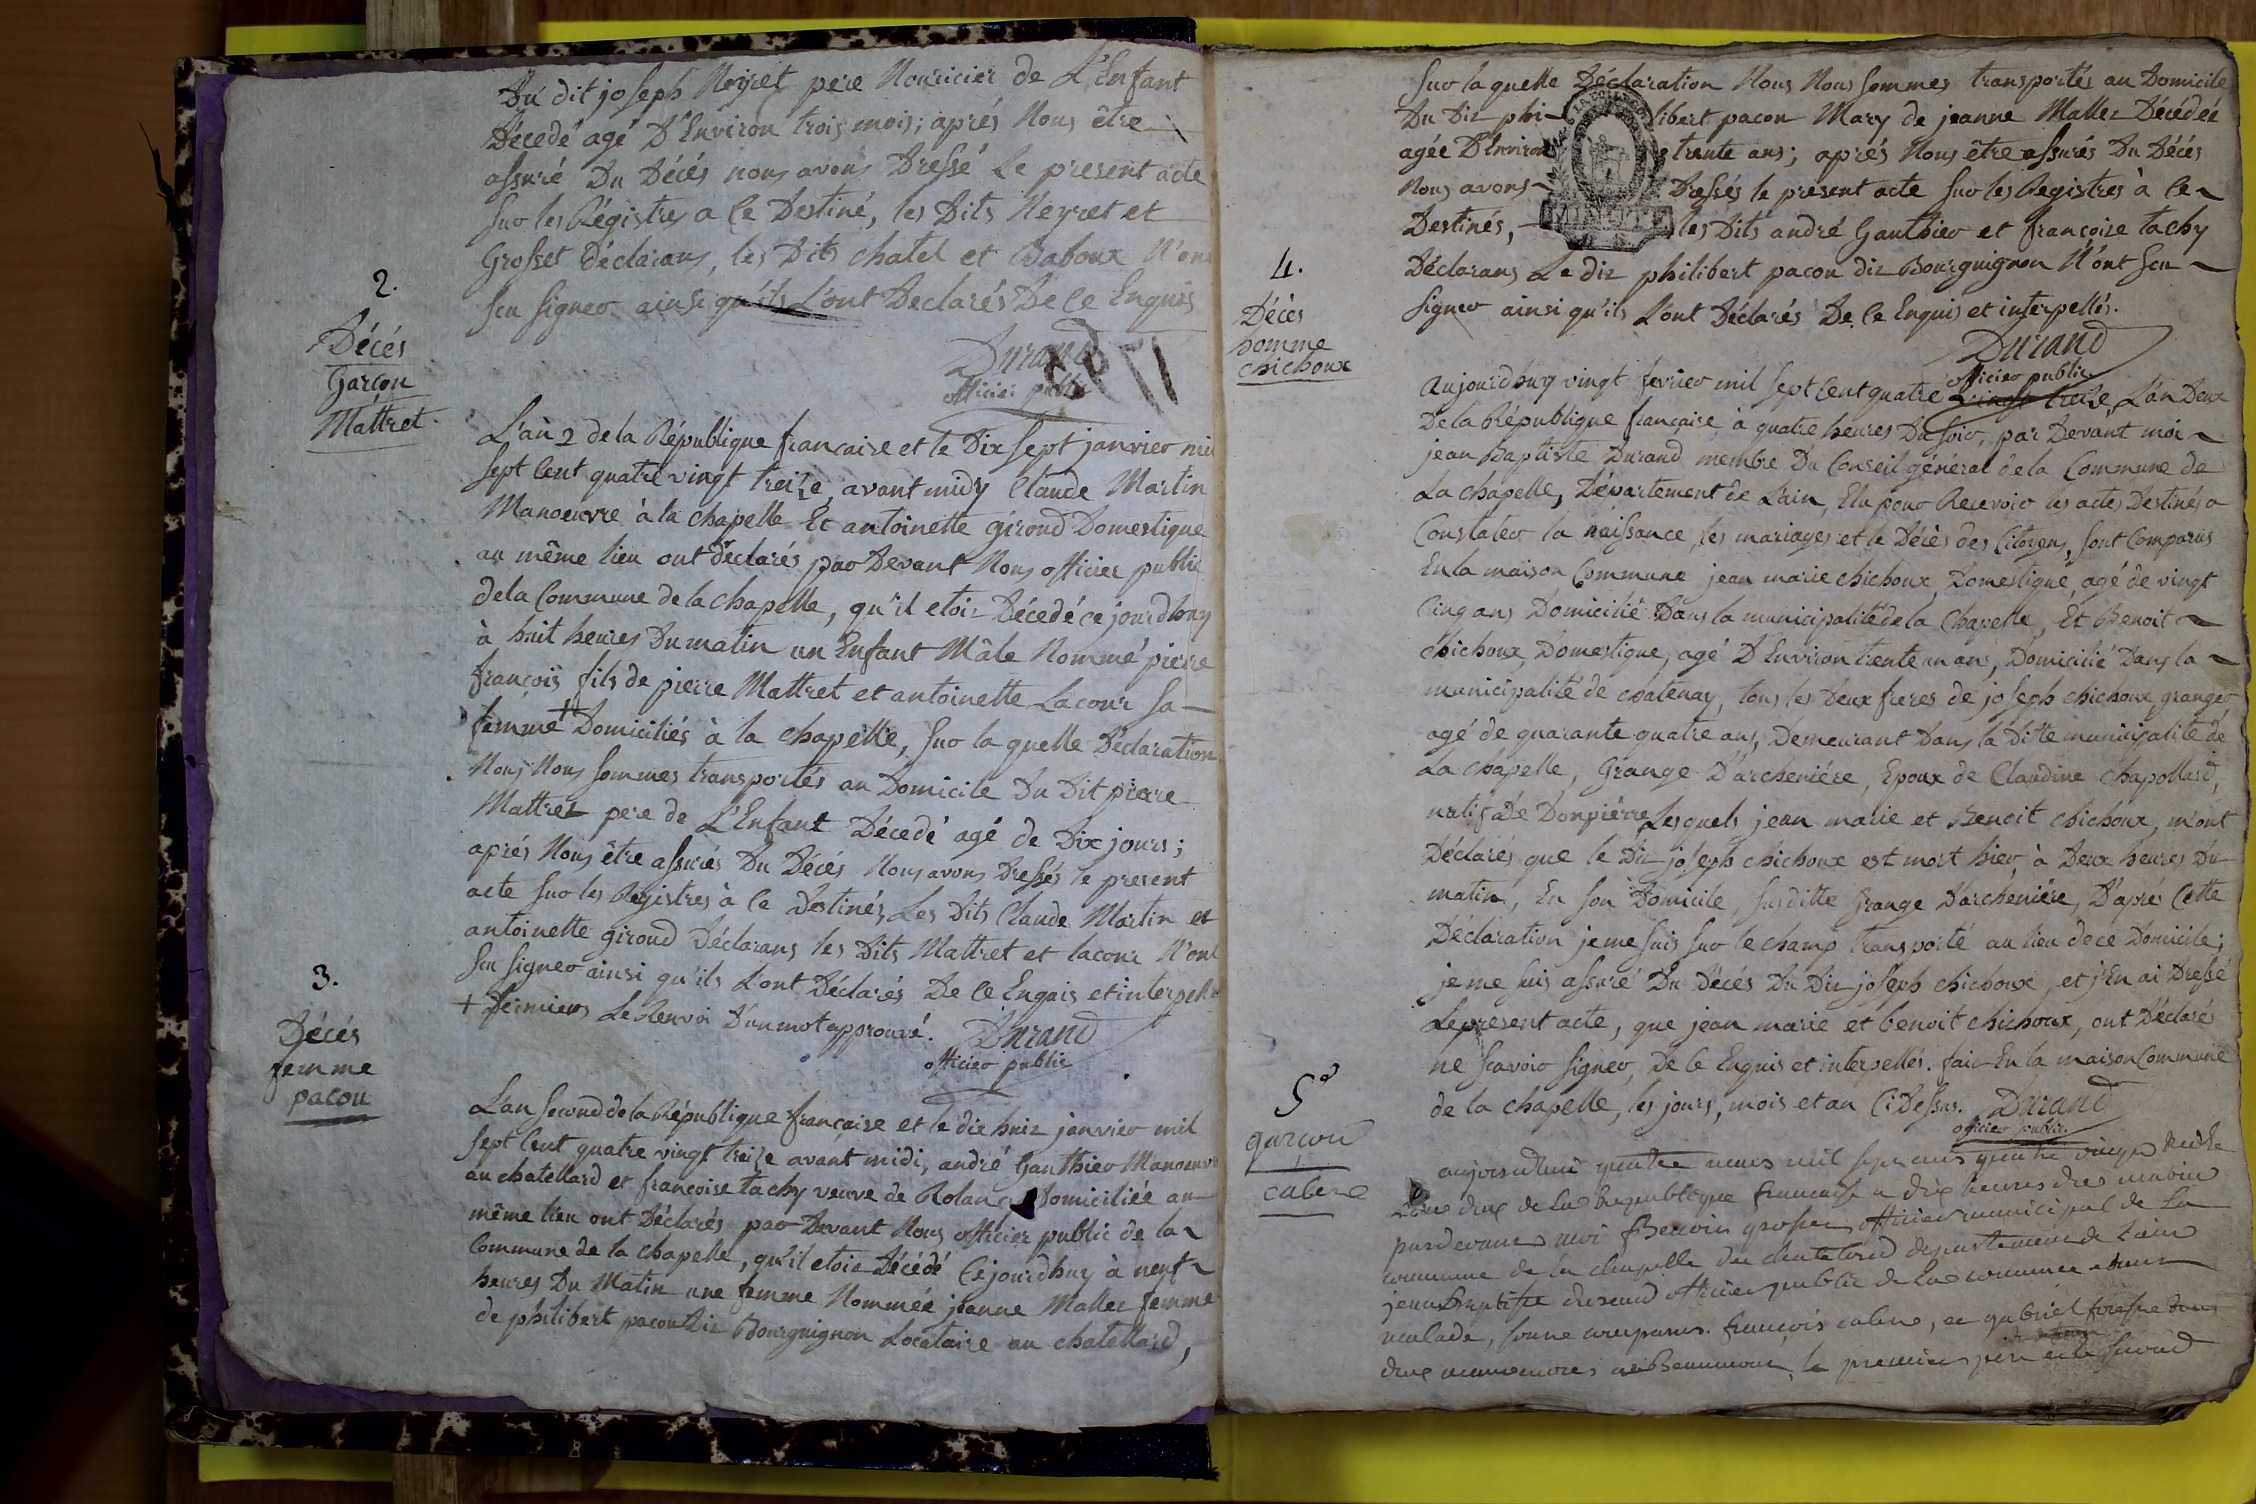 Du dit joseph Neyret pere Nouricier de L'Enfant
Décedé agé D'Environ trois mois; aprés Nous être
assuré Du Décés nous avons Dressé Le present acte
sur les Régistres a Ce Destiné, les Dits Neyret et
Grosset Déclarans, les Dits chatel et Baboux N'ont
seu signer ainsi qu'ils L'ont Declarés De Ce Enquis
Durand
officier public
2.
Décés
Garçon
Mattret.
L'an 2 de la République francaise et le Dix sept janvier mil
sept Cent quatre vingt treize, avant midy Claude Martin
Manoeuvre à la chapelle Et antoinette giroud Domestique
au même lieu ont déclarés par Devant Nous officier public
de la Commune de la chapelle, qu'il etoit Décedé ce jourdhuy
à huit heures Du matin un Enfant Mâle Nommé pierre
françois fils de pierre Mattret et antoinette Lacour sa
femme + Domiciliés à la chapelle, sur la quelle Déclaration
Nous Nous sommes transportés au Domicile Du Dit pierre
Mattret pere de L'Enfant Décedé agé de Dix jours;
aprés Nous être assurés Du Décés Nous avons Dressés le present
acte sur les Registres à Ce Destinés, Les Dits Claude Martin et
antoinette giroud Déclarans les Dits Mattret et lacour N'ont
seu signer ainsi qu'ils L'ont Déclarés De Ce Enquis et interpellés
+ Derniers Le Renvoi D'un mot approuvé. Durand
officier public
3.
Décés
femme
pacon
L'an second de la République française et le dix huit janvier mil
sept Cent quatre vingt treize avant midi, andré Gauthier Manoeuvre
au chatellard et francoise tachy veuve de Roland Domiciliée au
même lieu ont Déclarés par Devant Nous officier public de la
Commune de la chapelle, qu'il etoit Décédé Cejourdhuy à neuf
heures Du Matin une femme Nommée jeanne Mallet femme
de philibert pacon Dit Bourguignon Locataire au chatellard,
sur la quelle Déclaration Nous Nous sommes transportés au Domicile
Du Dit philibert pacon Mary de jeanne Mallet Décédée
agée D'Environ trente ans; aprés Nous être assurés Du Décés
Nous avons Dressés le présent acte sur les Registres à Ce
Destinés, les Dits andré Gauthier et francoise tachy
Déclarans Le dit philibert pacon dit Bourguignon N'ont seu
signer ainsi qu'ils L'ont Déclarés De Ce Enquis et interpellés.
Durand
officier public
4.
Décès
homme
chichoux
Aujourdhuy vingt fevrier mil sept Cent quatre vingt treize, L'an Deux
De la République française, à quatre heures Du soir, par Devant moi
jean Baptiste Durand membre Du Conseil général de la Commune de
La chapelle, Département de L'ain, Elu pour Recevoir les actes Destinés a
Constater la naissance, les mariages et le Décès des Citoyens, sont Comparus
En la maison Commune jean marie chichoux, Domestique, agé de vingt
Cinq ans Domicilié Dans la municipalité de la Chapelle, Et Benoit
chichoux, Domestique, agé D'Environ trente un ans, Domicilié Dans la
municipalité de chatenay, tous les Deux freres de joseph chichoux granger
agé de quarante quatre ans, Demeurant Dans la Ditte municipalité de
La chapelle, Grange D'archeniére, Epoux de Claudine Chapolland,
natif De Dompierre, Lesquels jean marie et Benoit chichoux, m'ont
Déclarés que le Dit joseph chichoux est mort hier, à Deux heures Du
matin, En son Domicile, susditte Grange D'archeniére, D'aprés Cette
Déclaration je me suis sur le champ transporté au lieu de ce Domicile;
je me suis assuré Du Décés Du Dit joseph chichoux, et j'En ai Dressé
Le présent acte, que jean marie et benoit chichoux, ont Déclarés
ne scavoir signer, De Ce Enquis et interpellés. fait En la maison Commune
de la chapelle, les jours, mois et an Ci Dessus. Durand
officier public
5e
garçon
calene
aujourdhui quatre mars mil sept cens quatre vingt treize
L'an deux de la Republique francaise a dix heures du matin
pardevant moi Benoit grosset officier municipal de la
commune de la chapelle du chatelard departement de l'ain
jean Baptiste durand officier public de la commune etant
malade, sont comparus françois calene, et gabriel
deux manoeuvres a Beaumont, le premier pere et le second